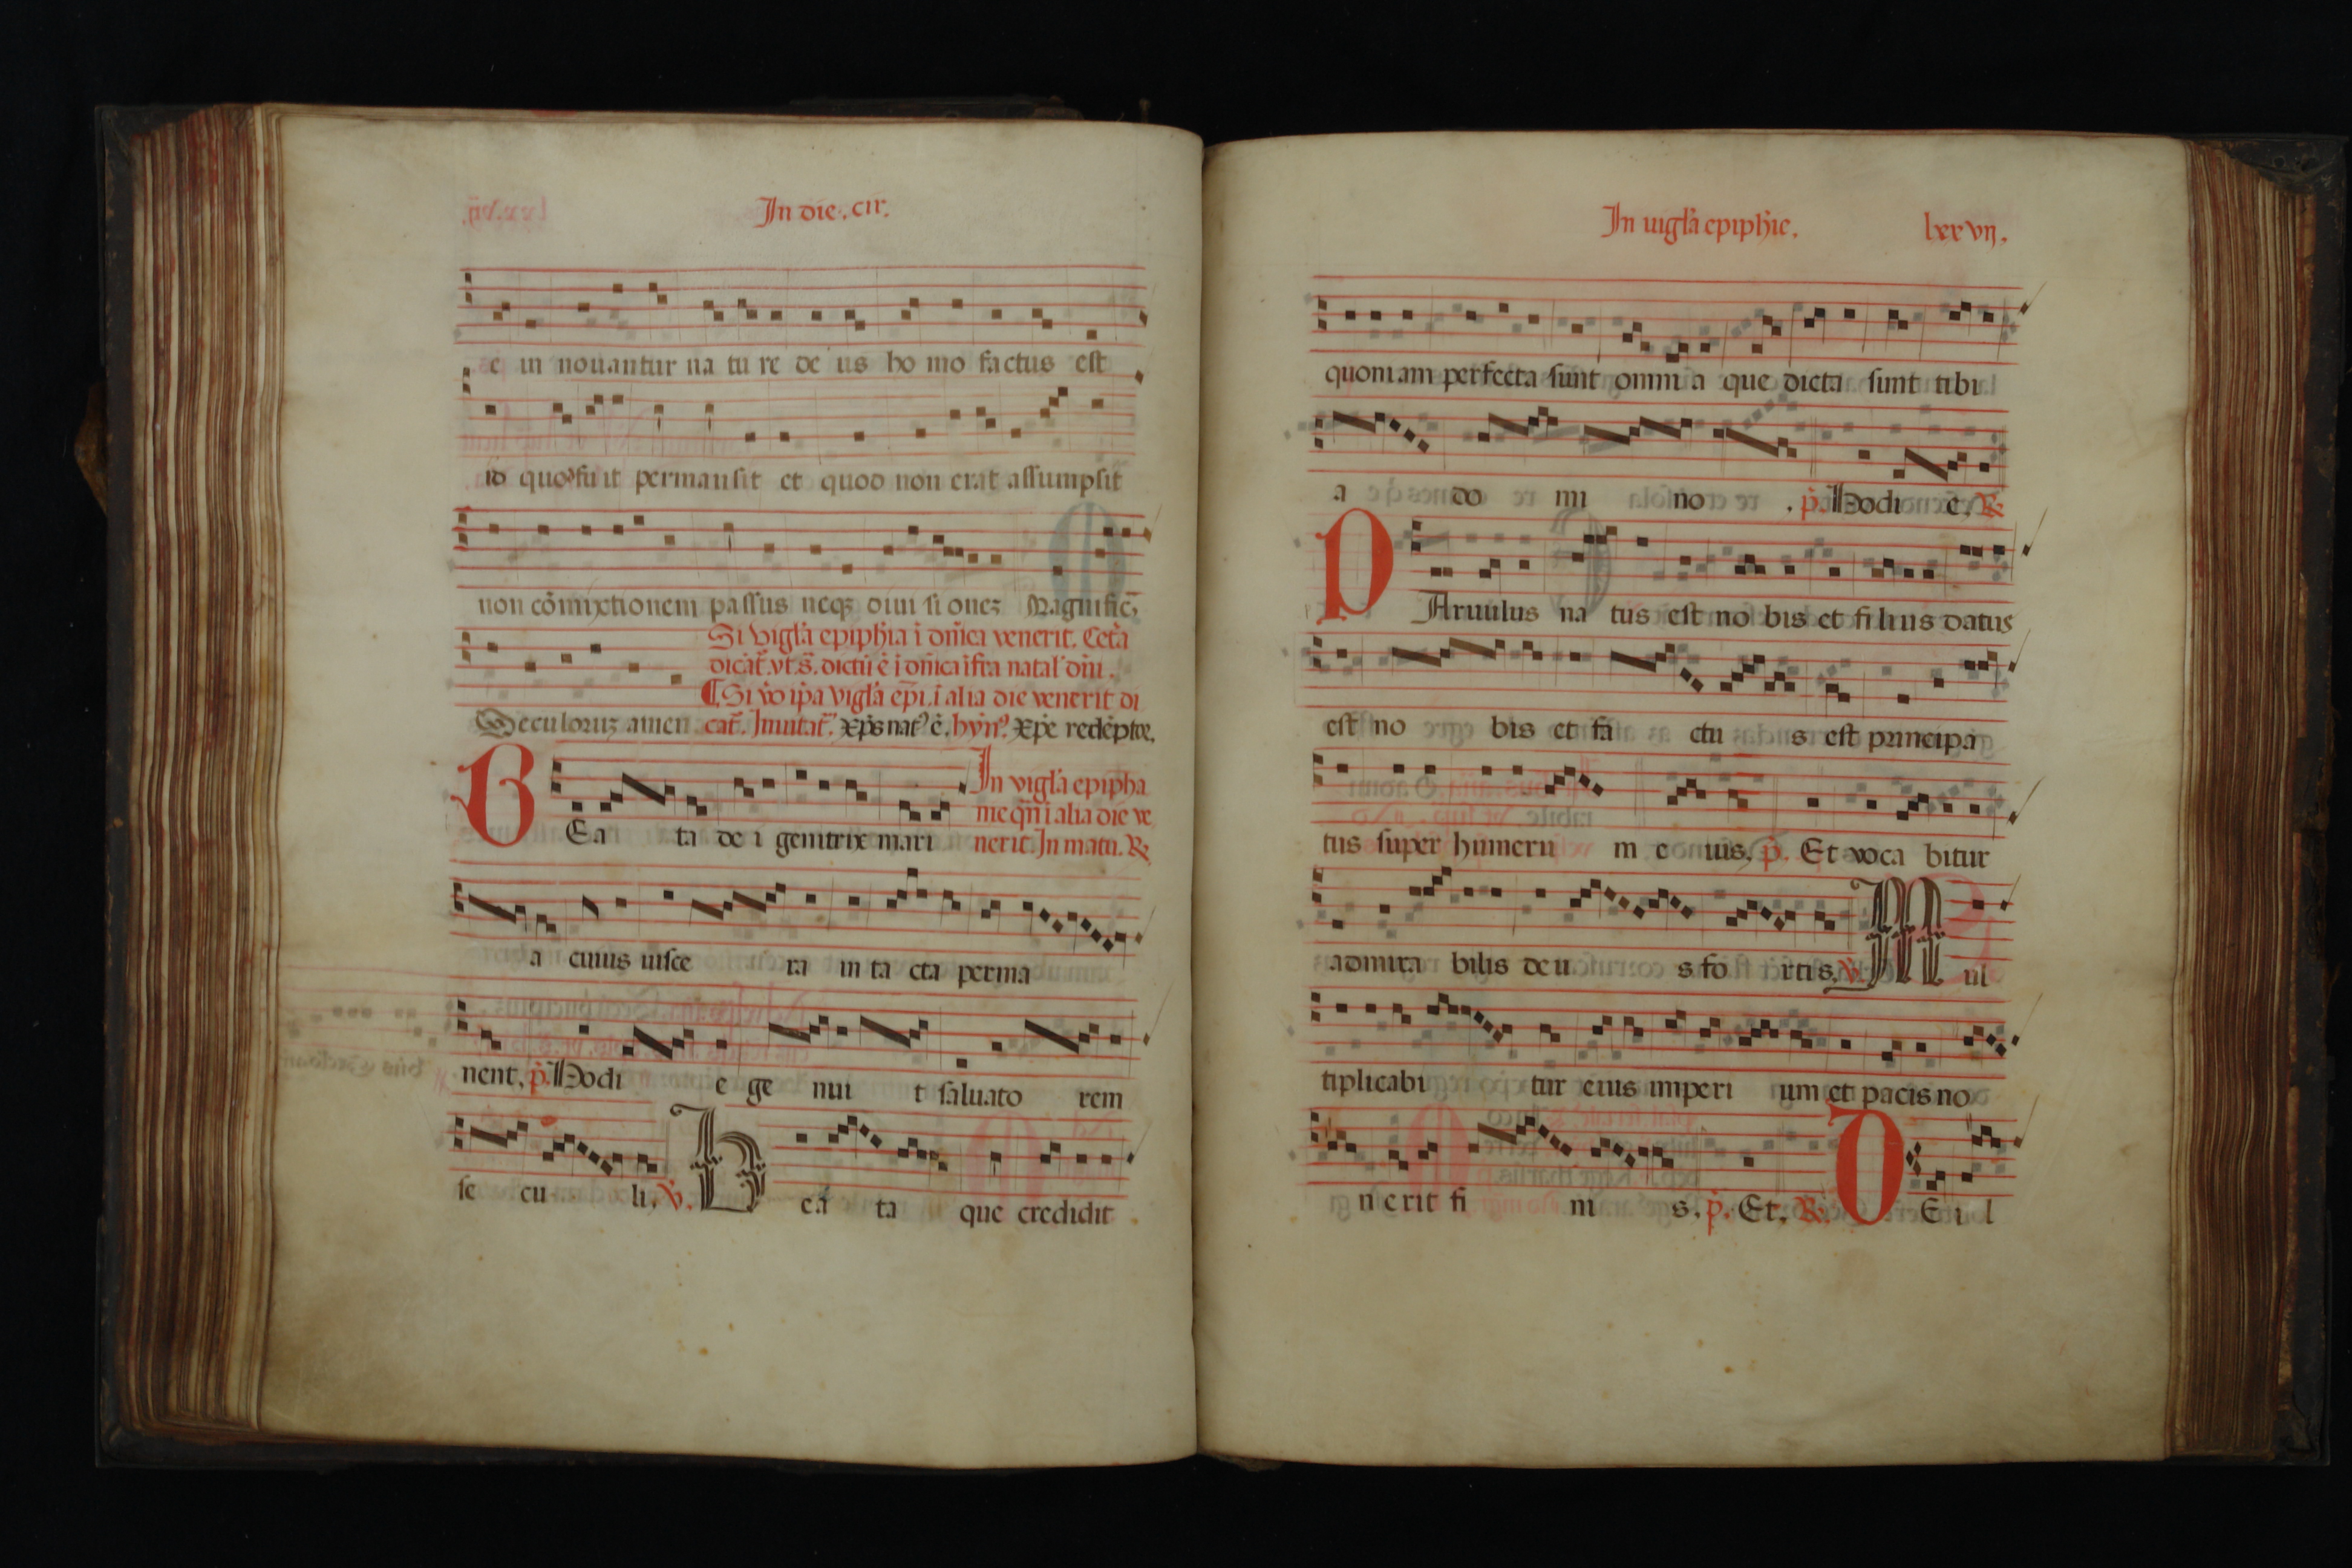 In die. cir.
e in nouantur na tu re de us ho mo factus est
id quod fu it permansit et quod non erat assumpsit
non cōmixtionem passus neqʒ diui si oneʒ Magnific̄,
Si vigl'a epiph'ia ī dn̄ica venerit. Cet'a
dicāt̄. vt s̄. dictū ē ī dn̄ica īfra natal' dn̄i.
¶ Si v̓o ip̄a vigl'a ep̄i. ī alia die venerit di
Seculoruʒ amen cat̄. Inuitat̄. xp̄s nat' ē. hyn'. xp̄e redēptor.
In vigl'a epipha
nie qn̄ ī alia die ve
BEa ta de i genitrix mari nerit. In matu. ℟
a cuius uisce ra in ta cta perma
nent, p̄. Hodi e ge nui t saluato rem
se cu li, ℣. bea ta que credidit
In uigl'a epiph'ie. lxxvij.
quoniam perfecta sunt omni a que dicta sunt tibi
a do mi no . p̄. Hodi e. ℟
PAruulus na tus est no bis et fi lius datus
est no bis et fa ctu s est principa
tus super humeru m e ius, p̄. Et voca bitur
admira bilis de u s fo rtis, ℣. Mul
tiplicabi tur eius imperi um et pacis no
n erit fi ni s, p̄. Et, ℟. DE i l